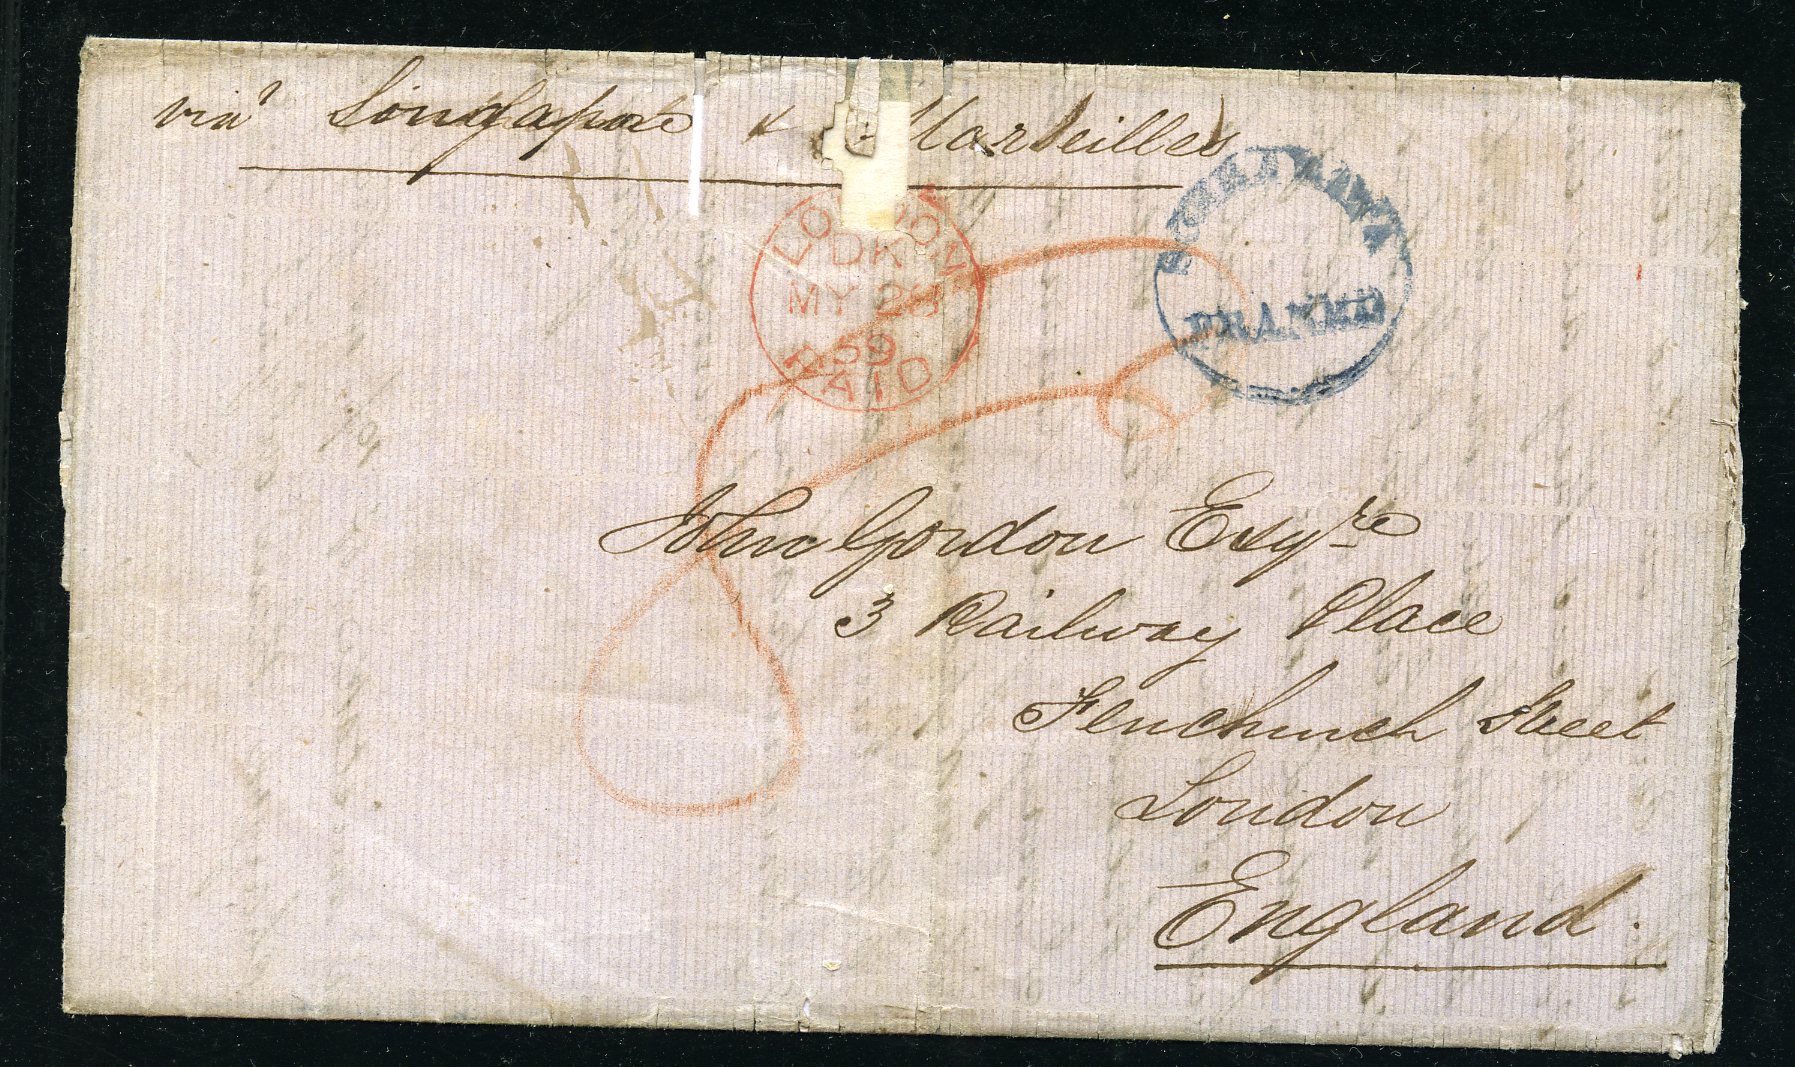 via Singapore & Marseilles
LONDON
DK
MY 28
59
PAID
SOERABAIJA
FRANCO
John Gordon Esqre
3 Railway Place
Fenchurch Street
London
England.